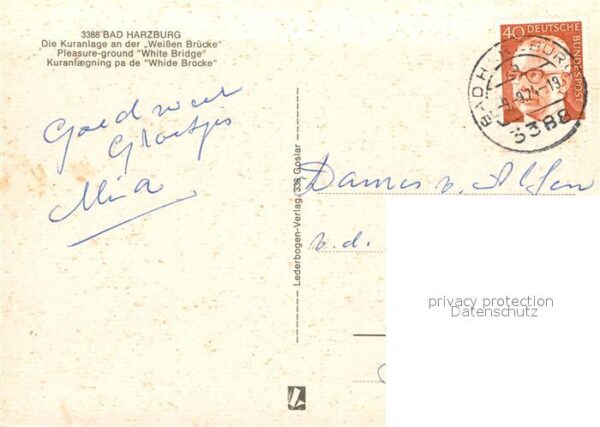 3388 BAD HARZBURG
Die Kuranlage an der „Weißen Brücke"
Pleasure-ground "White Bridge"
Kuranlægning pa de "Whide Brocke"
Goed weer
Groetjes
Mia
Lederbogen-Verlag, 338 Goslar
40
DEUTSCHE BUNDESPOST
BAD HARZBURG
-9.74-19
3388
Dames v.
v.d.
privacy protection
Datenschutz